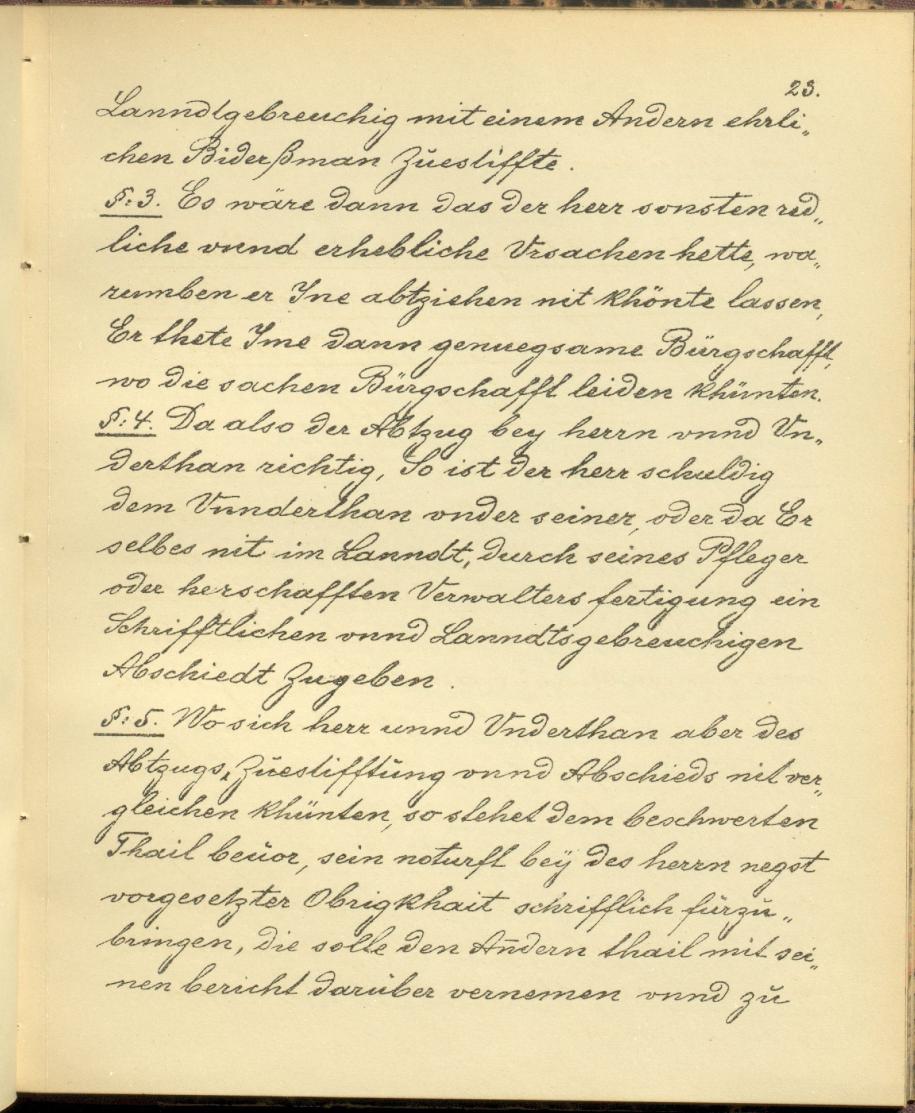 23.
Lanndtgebreuchig mit einem Andern ehrli„
chen Biderßman Zuestiffte.
§: 3. Es wäre dann das der herr sonsten red„
liche vnnd erhebliche Vrsachen hette, wa„
rumben er Ine abtziehen nit khönte lassen,
Er thete Ime dann genuegsame Bürgschafft,
wo die sachen Bürgschafft leiden khünten.
§: 4. Da also der Abtzug bey herrn vnnd Vn„
derthan richtig, So ist der herr schuldig
dem Vnnderthan vnder seiner, oder da Er
selbes nit im Lanndt, durch seines Pfleger
oder herschafften Verwalters fertigung ein
Schrifftlichen vnnd Lanndtsgebreuchigen
Abschiedt Zugeben.
§: 5. Wo sich herr unnd Vnderthan aber des
Abtzugs, Züestifftüng vnnd Abschieds nit ver„
gleichen khünten, so stehet dem beschwerten
Thail beüor, sein noturft beÿ des herrn negst
vorgesetzter Obrigkhait schrifflich fürzü„
bringen, die solle den Andern thail mit sei„
nen bericht darüber vernemen vnnd zü